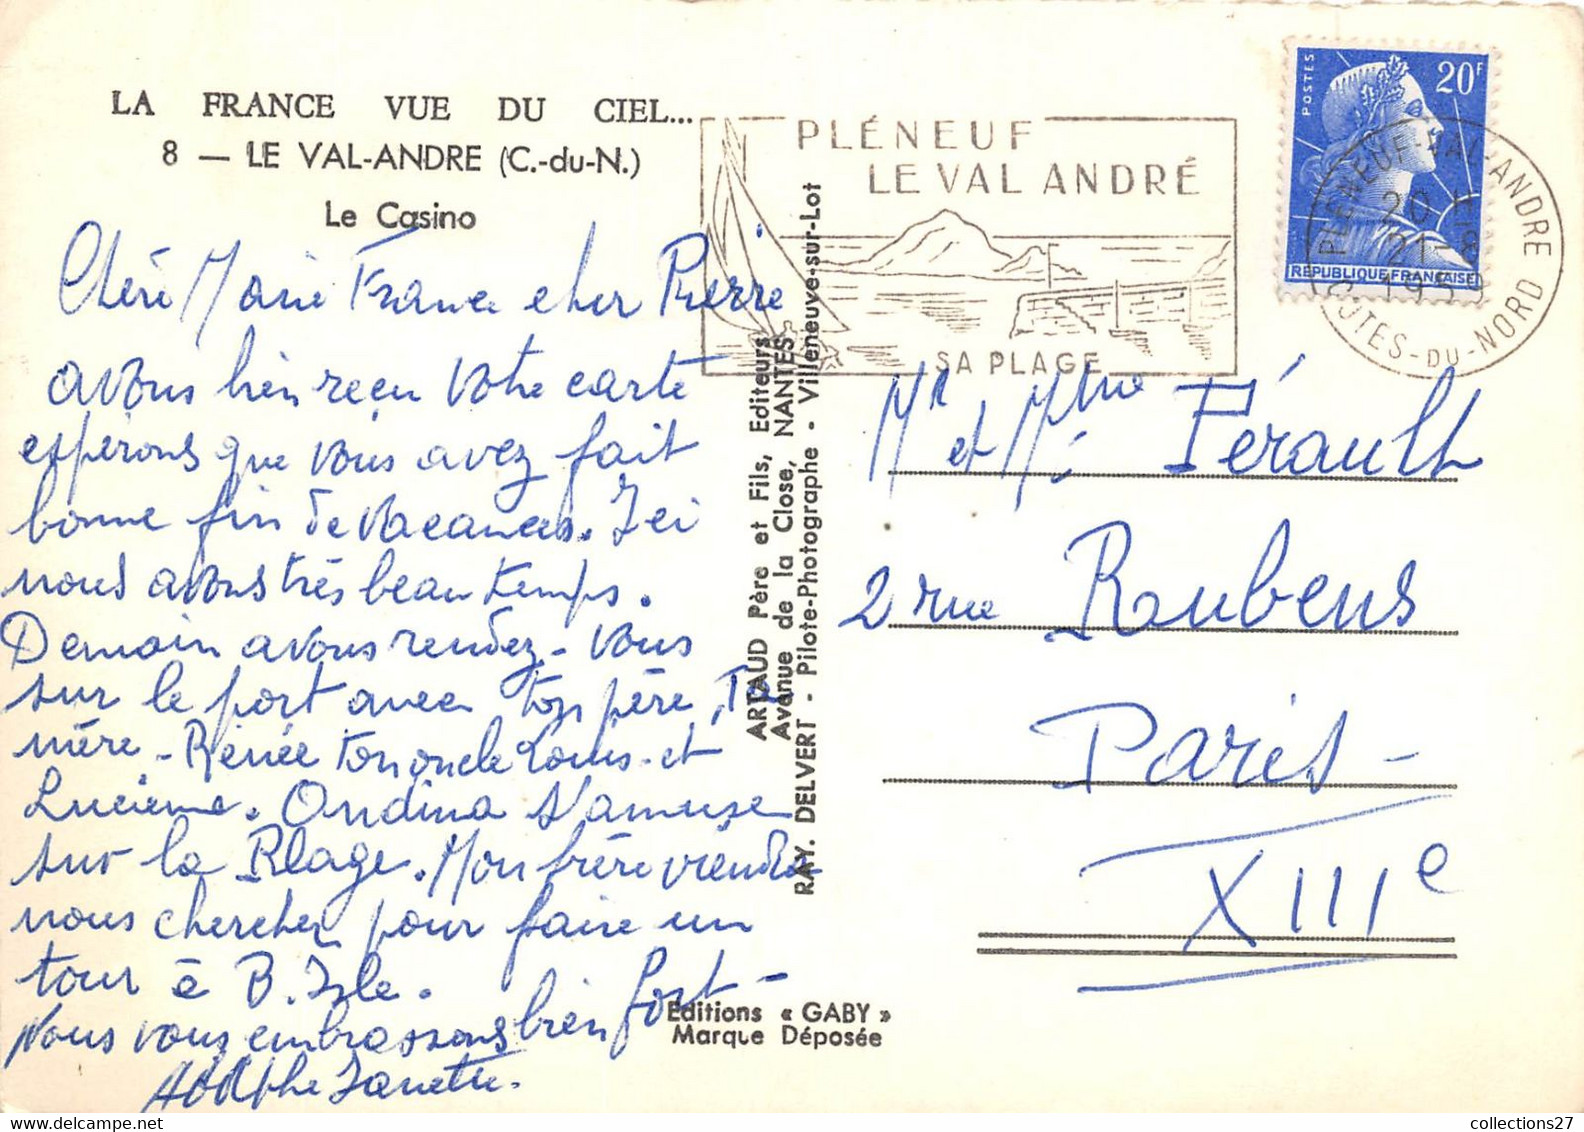 LA FRANCE VUE DU CIEL...
8 — LE VAL-ANDRE (C.-du-N.)
Le Casino
Chère Marie France cher Pierre
avons bien reçu votre carte
espérons que vous avez fait
bonne fin de vacances. Ici
nous avons très beau temps.
Demain avons rendez-vous
sur le port avec ton père, Ta
mère - Renée ton oncle Louis et
Lucienne. Ondina s'amuse
sur la Plage. Mon frère viendra
nous chercher pour faire un
tour à B. Isle.
Nous vous embrassons bien fort-
Adolphe Janette.
ARTAUD Père et Fils, Editeurs
Avenue de la Close, NANTES
RAY. DELVERT - Pilote-Photographe - Villeneuve-sur-Lot
Editions « GABY »
Marque Déposée
PLÉNEUF
LE VAL ANDRÉ
SA PLAGE
POSTES
20F
REPUBLIQUE FRANÇAISE
PLENEUF-VAL-ANDRE
20 H
21-8
195
COTES-DU-NORD
Mr et Mme Férault
2 rue Rubens
Paris-
XIIIe
collections27